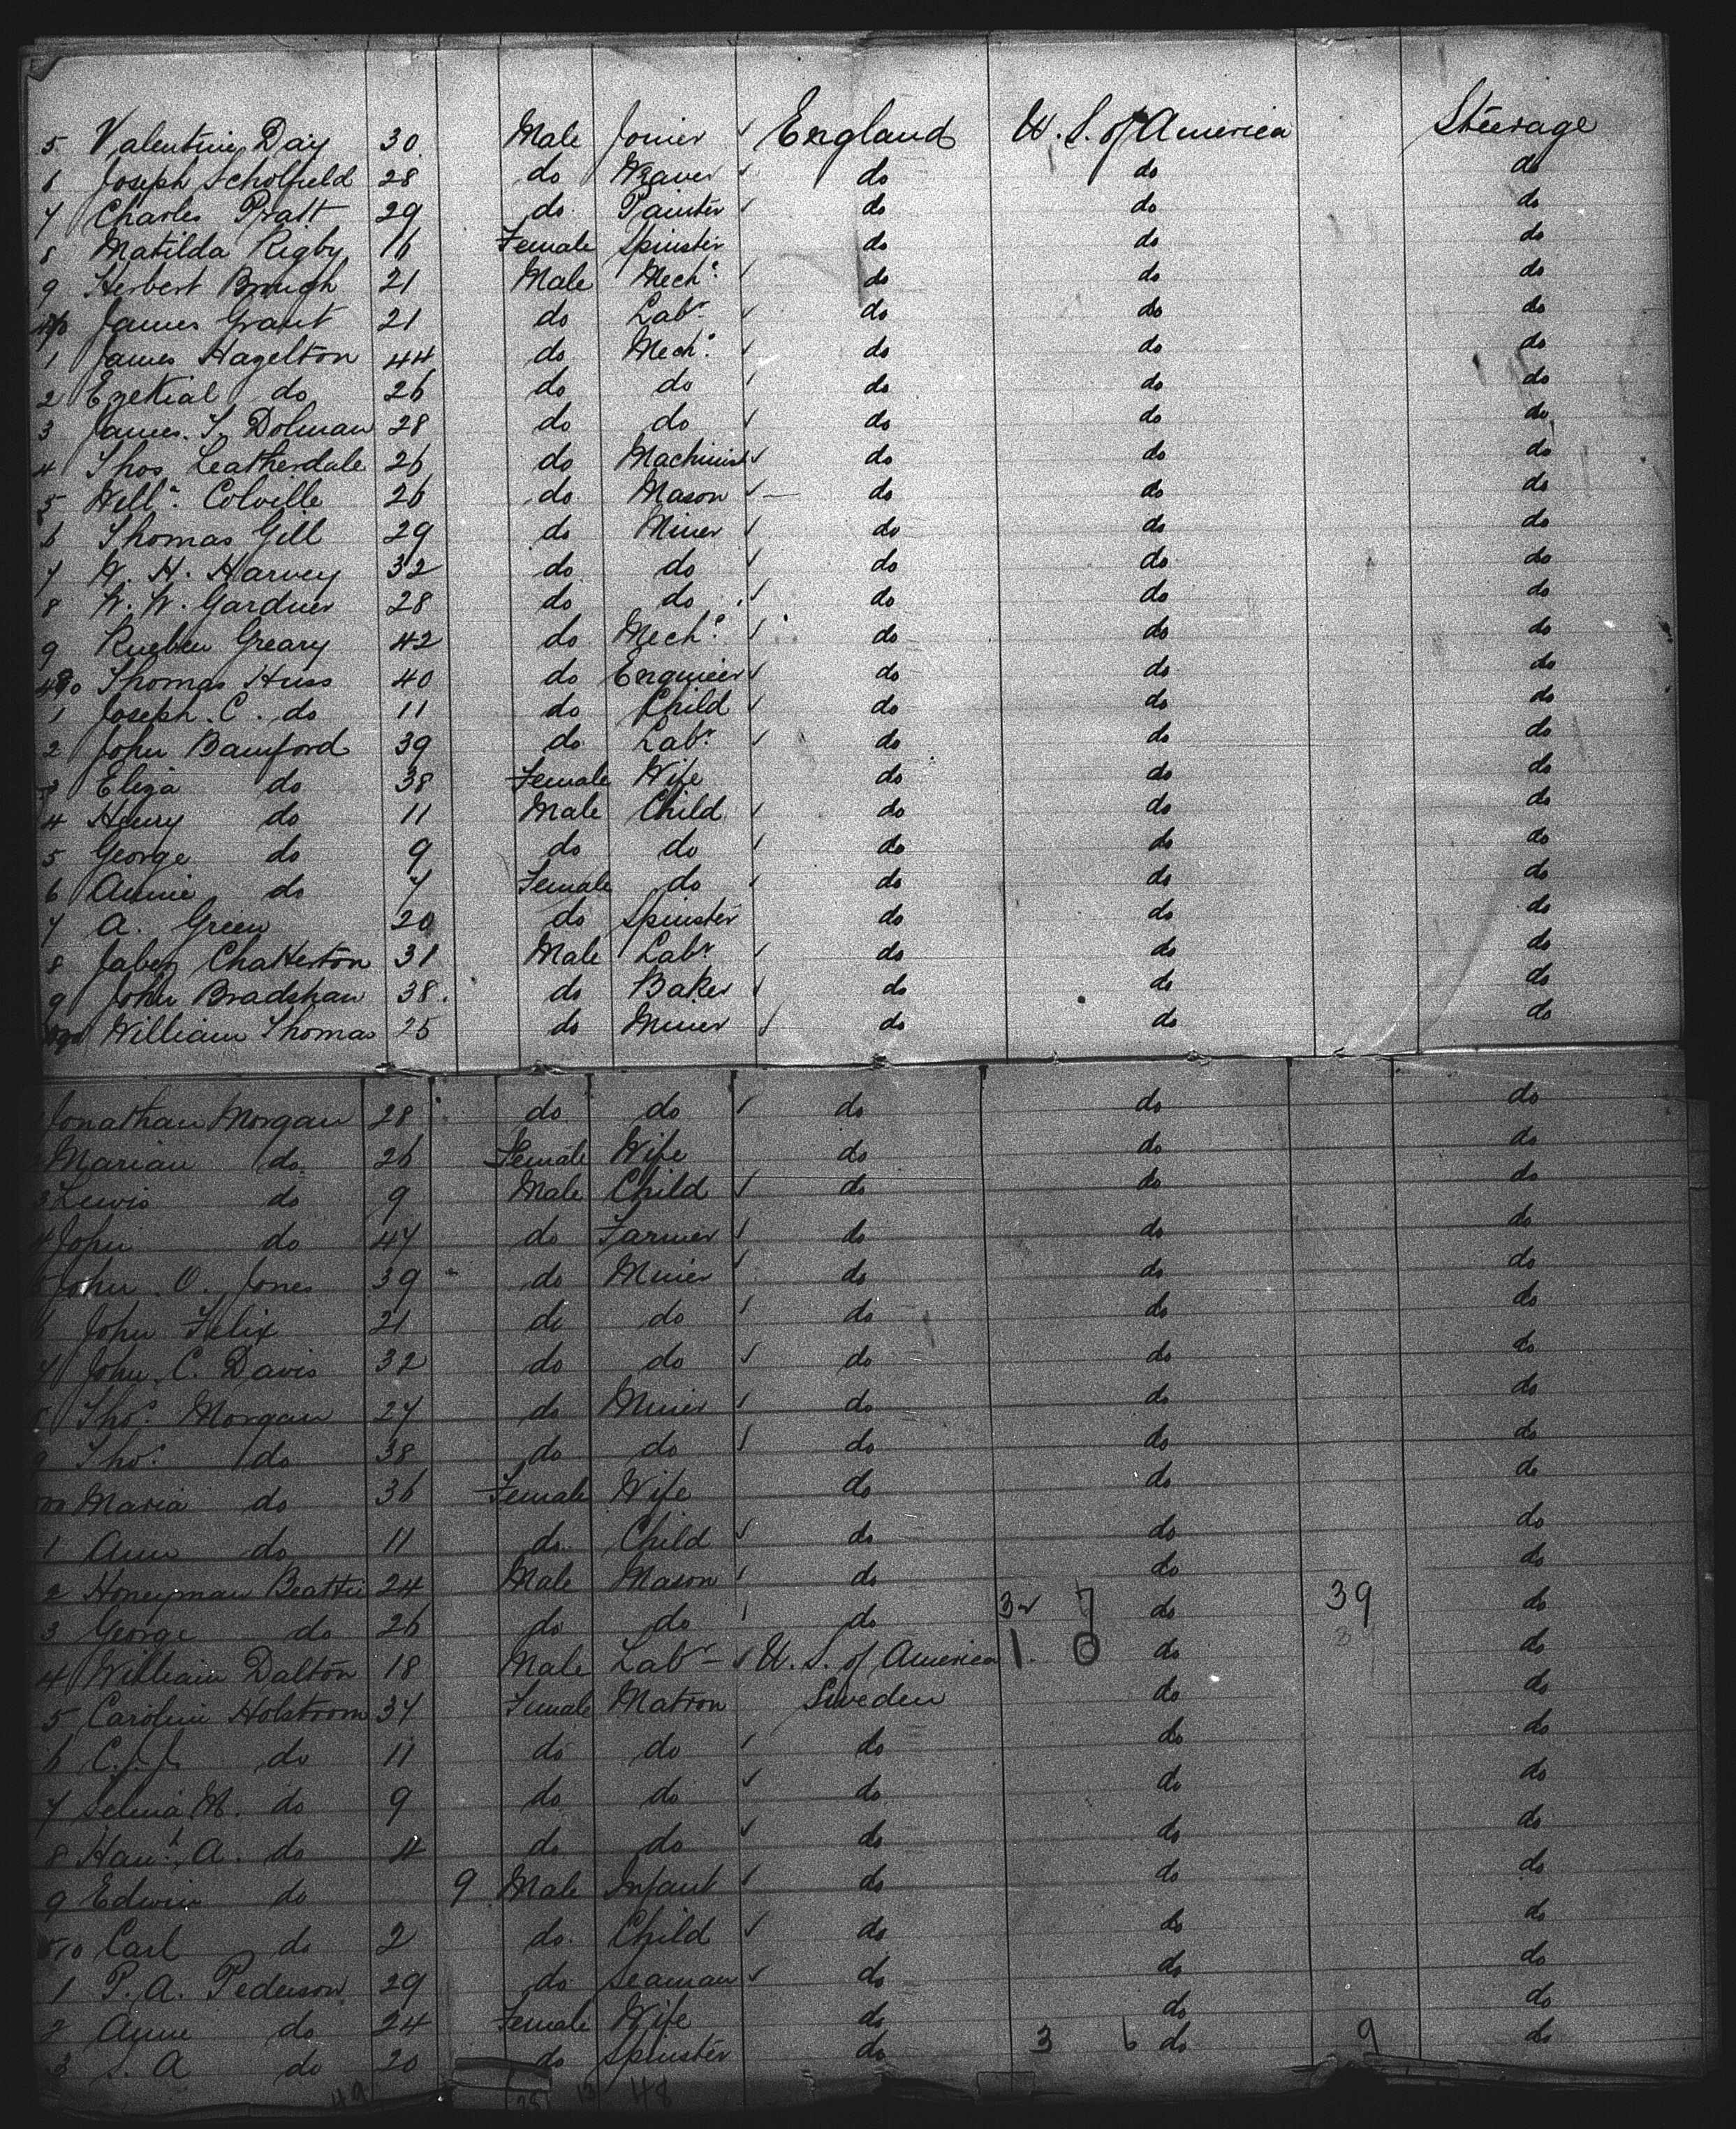 5 Valentine Day 30 Male Joiner ✓ England U. S. of America Steerage
6 Joseph Scholfield 28 do Weaver ✓ do do do
7 Charles Pratt 29 do Painter ✓ do do do
8 Matilda Rigby 16 Female Spinster do do do
9 Herbert Brough 21 Male Mech^c ✓ do do do
James Grant 21 do Lab^r ✓ do do do
1 James Hazelton 44 do Mech^c ✓ do do do
2 Ezekial do 26 do do ✓ do do do
3 James. T. Dolman 28 do do ✓ do do do
4 Thos Leatherdale 26 do Machinist ✓ do do do
5 Will^m Colville 26 do Mason ✓ do do do
6 Thomas Gill 29 do Miner ✓ do do do
7 W. H. Harvey 32 do do ✓ do do do
8 W. W. Gardner 28 do do ✓ do do do
9 Rueben Greary 42 do Mech^c ✓ do do do
Thomas Huss 40 do Engineer ✓ do do do
1 Joseph. C. do 11 do Child ✓ do do do
2 John Bamford 39 do Lab^r ✓ do do do
3 Eliza do 38 Female Wife do do do
4 Henry do 11 Male Child ✓ do do do
5 George do 9 do do ✓ do do do
6 Annie do 7 Female do ✓ do do do
7 A. Green 20 do Spinster do do do
8 Jabez Chatterton 31 Male Lab^r ✓ do do do
9 John Bradshaw 38 do Baker ✓ do do do
William Thomas 25 do Miner ✓ do do do
Jonathan Morgan 28 do do ✓ do do do
Marian do 26 Female Wife do do do
3 Lewis do 9 Male Child ✓ do do do
4 John do 47 do Farmer ✓ do do do
5 John. O. Jones 39 do Miner ✓ do do do
6 John Felix 21 do do ✓ do do do
7 John. C. Davis 32 do do ✓ do do do
8 Tho^s Morgan 27 do Miner ✓ do do do
9 Tho^s do 38 do do ✓ do do do
Maria do 36 Female Wife do do do
1 Ann do 11 do Child ✓ do do do
2 Honeyman Beattie 24 Male Mason ✓ do do do
3 George do 26 do do ✓ do 32 7 do 39 do
4 William Dalton 18 Male Lab^r ✓ U. S. of America 1 0 do do
5 Caroline Holstroom 37 Female Matron Sweden do do
6 C. J. J. do 11 do do ✓ do do do
7 Selma M. do 9 do do ✓ do do do
8 Han^h A. do 4 do do ✓ do do do
9 Edwin do 9 Male Infant ✓ do do do
510 Carl do 2 do Child ✓ do do do
1 P. A. Pederson 29 do Seaman ✓ do do do
2 Anne do 24 Female Wife do do do
3 S. A do 20 do Spinster do 3 6 do 9 do
49 48